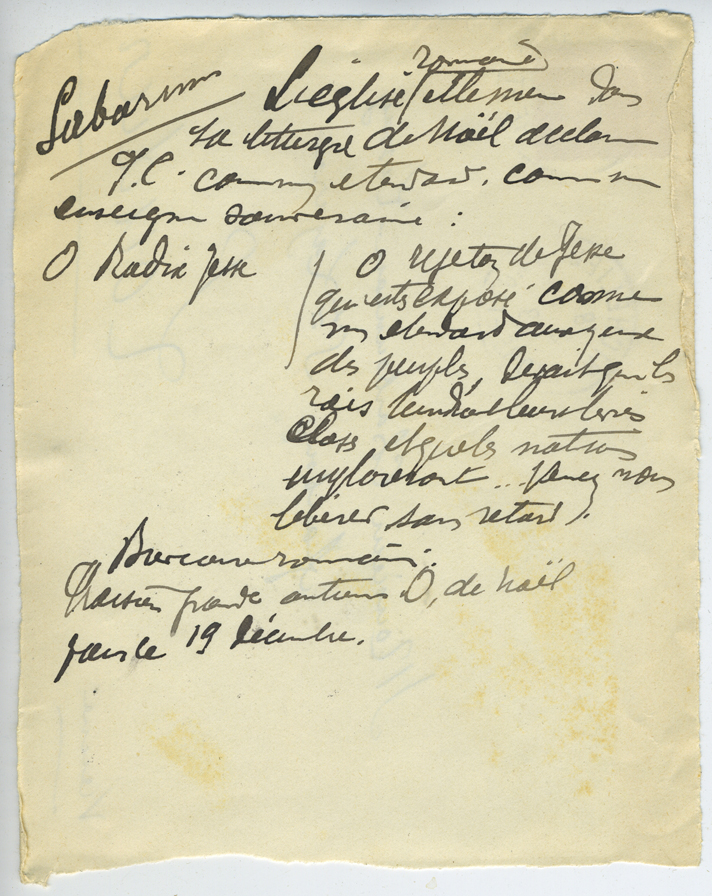 Labarum
romaine
L'église elle-même dans
sa liturgie de Noël déclare
J.C. comme étendard, comme
enseigne souveraine :
O Radix Jesse
O rejeton de Jesse
qui est exposé comme
un étendard aux yeux
des peuples, devant qui les
rois tiendront leurs lèvres
closes et que les nations
imploreront... venez nous
libérer sans retard).
Bréviaire romain.
grande antienne O, de Noël
pour le 19 décembre.